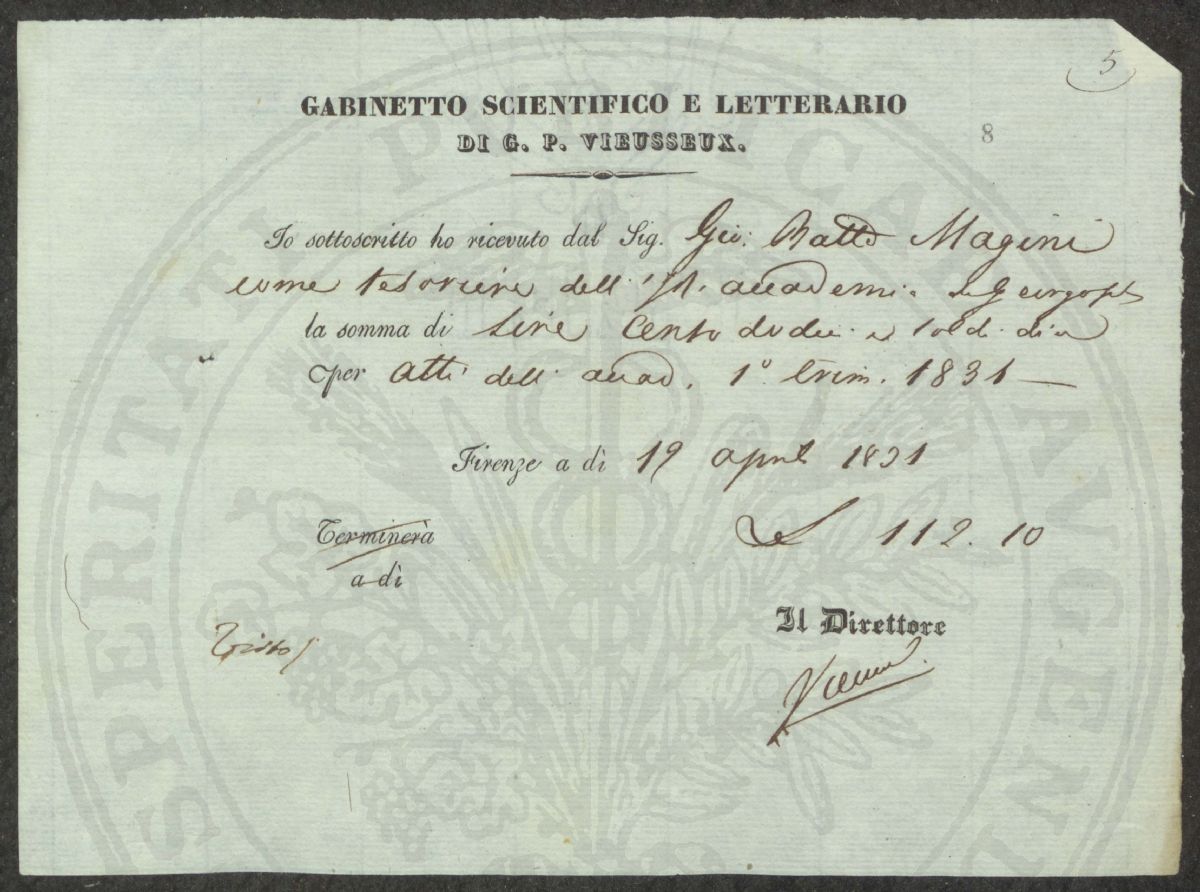 5
GABINETTO SCIENTIFICO E LETTERARIO
DI G. P. VIEUSSEUX.
8
Io sottoscritto ho ricevuto dal Sig. Gio: Batta Magini
come tesoriere dell' accademia Georgofili
la somma di Lire Cento dodici e soldi dieci
per atti dell' accad. 1° trim. 1831 —
Firenze a dì 19 aprile 1831
Terminerà
a dì
112. 10
Il Direttore
Visto
Vieusseux
PROSPERITATI PUBLICAE AUGENDAE